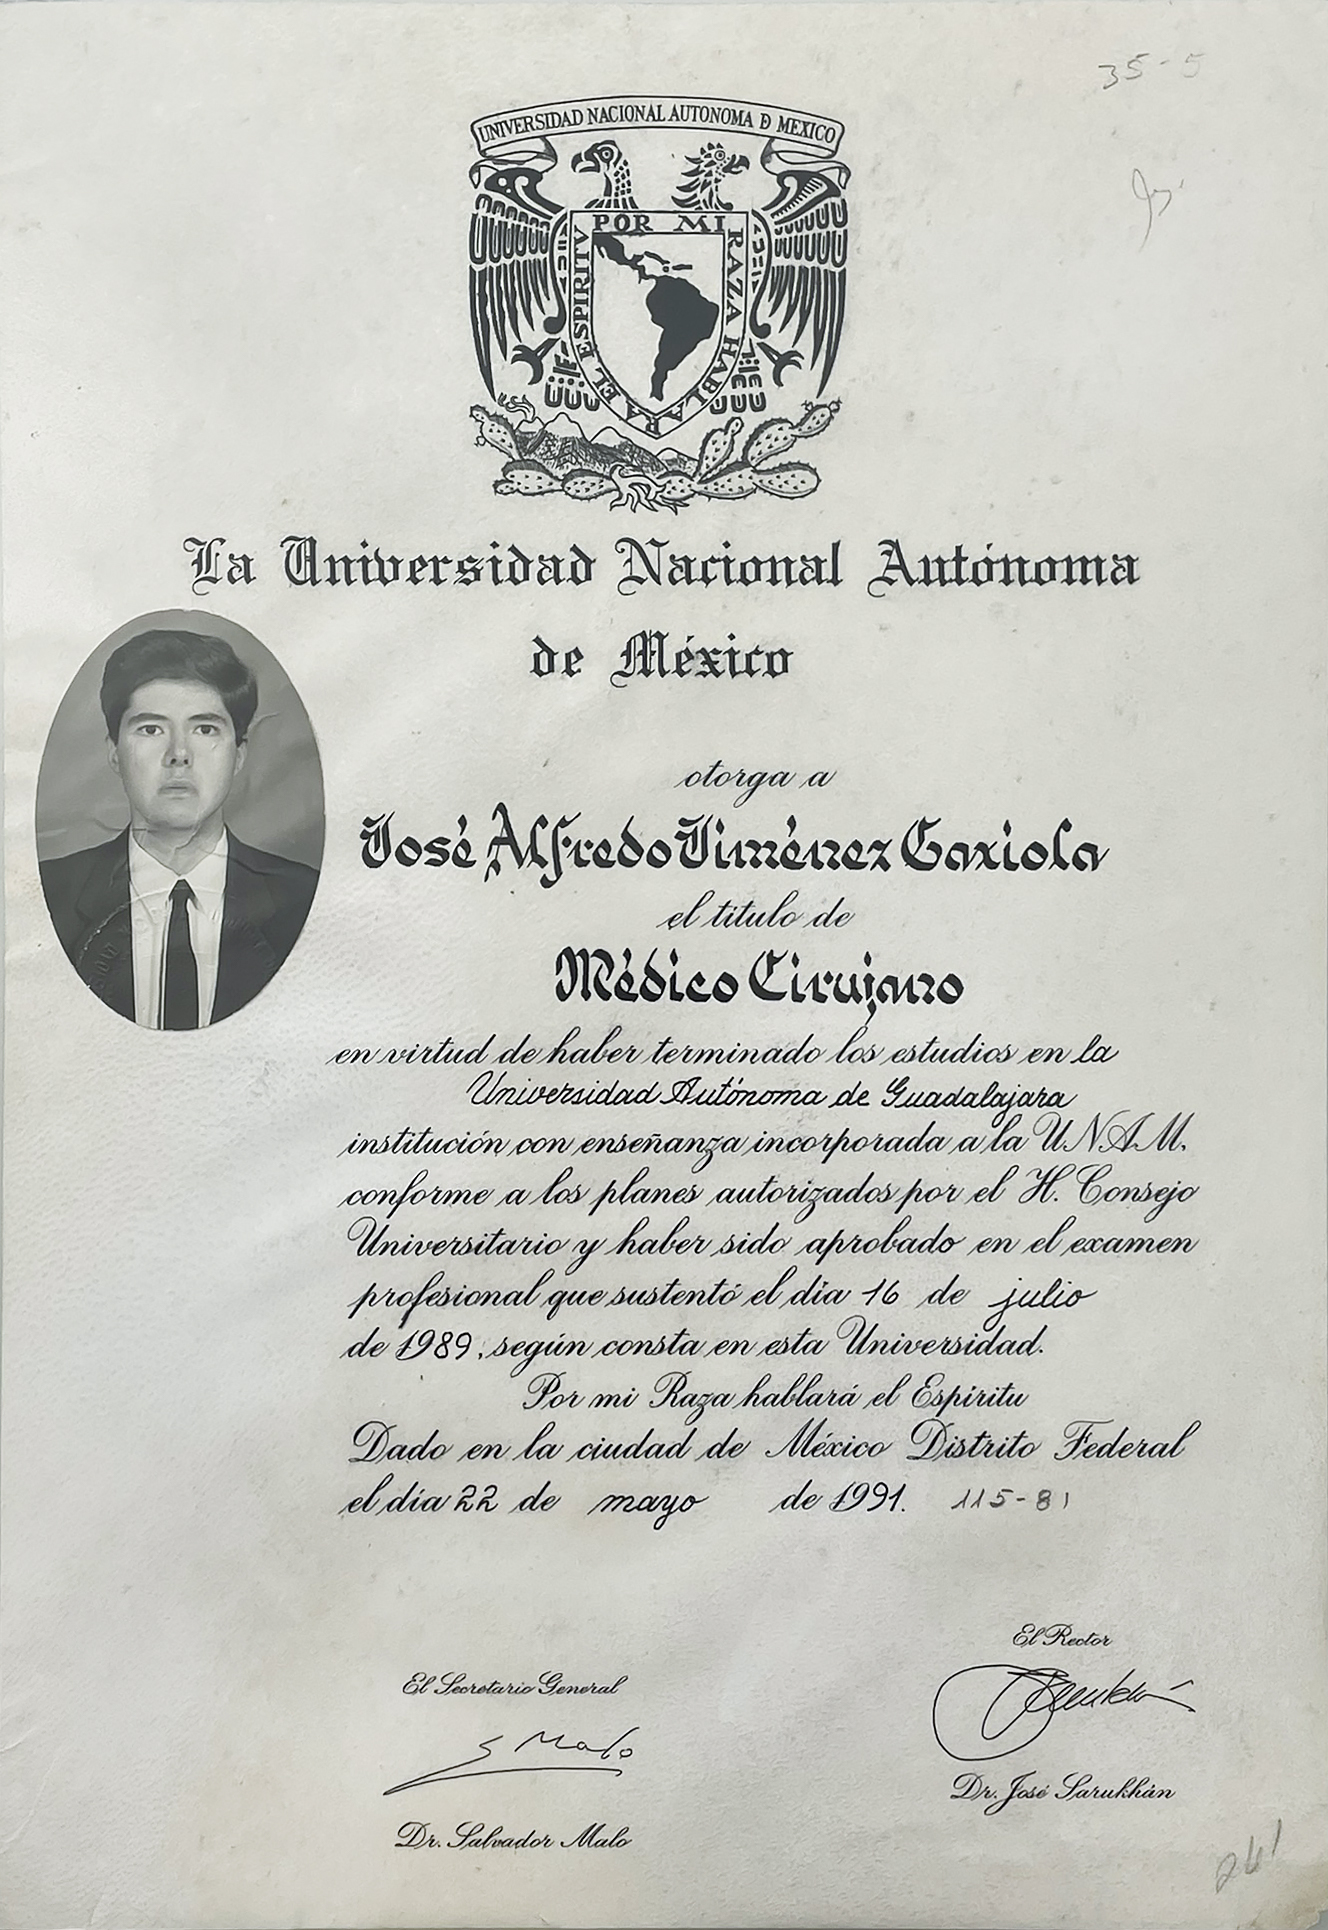 35-5
UNIVERSIDAD NACIONAL AUTONOMA Ð MEXICO
POR MI RAZA HABLARA EL ESPIRITU
La Universidad Nacional Autónoma
de México
otorga a
José Alfredo Jiménez Gaxiola
el titulo de
Médico Cirujano
en virtud de haber terminado los estudios en la
Universidad Autónoma de Guadalajara
institución con enseñanza incorporada a la U.N.A.M.
conforme a los planes autorizados por el H. Consejo
Universitario y haber sido aprobado en el examen
profesional que sustentó el día 16 de julio
de 1989, según consta en esta Universidad.
Por mi Raza hablará el Espíritu
Dado en la ciudad de México Distrito Federal
el día 22 de mayo de 1991. 115-81
El Rector
El Secretario General
S Malo
Dr. José Sarukhán
Dr. Salvador Malo
261